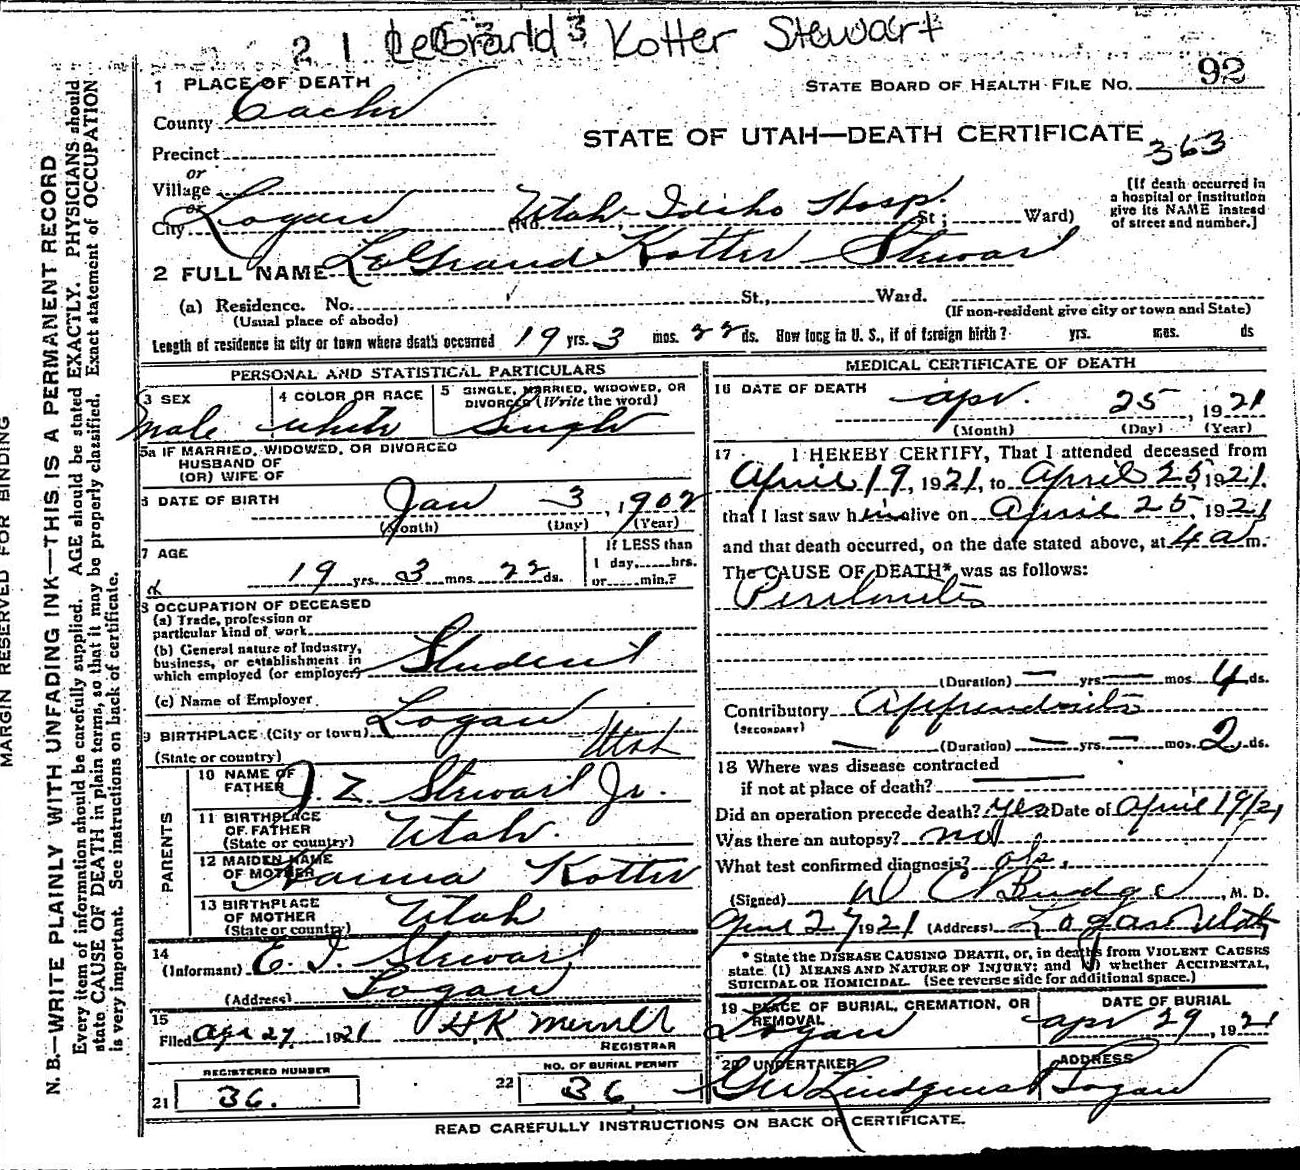 2 1 LeGrand 3 Kotter Stewart
1 PLACE OF DEATH
STATE BOARD OF HEALTH FILE No. 92
County Cache
STATE OF UTAH—DEATH CERTIFICATE
363
Precinct
or
Village
or
City Logan (No. Utah-Idaho Hosp. St; Ward)
[If death occurred in a hospital or institution give its NAME instead of street and number.]
2 FULL NAME LeGrand Kotter Stewart
(a) Residence. No. St., Ward.
(Usual place of abode) (If non-resident give city or town and State)
Length of residence in city or town where death occurred 19 yrs. 3 mos. 22 ds. How long in U. S., if of foreign birth? yrs. mos. ds
PERSONAL AND STATISTICAL PARTICULARS
3 SEX male
4 COLOR OR RACE white
5 SINGLE, MARRIED, WIDOWED, OR DIVORCED (Write the word) Single
5a IF MARRIED, WIDOWED, OR DIVORCED
HUSBAND OF
(OR) WIFE OF
6 DATE OF BIRTH Jan 3, 1902
(Month) (Day) (Year)
7 AGE 19 yrs. 3 mos. 22 ds.
If LESS than
1 day, hrs.
or min.?
8 OCCUPATION OF DECEASED
(a) Trade, profession or
particular kind of work
(b) General nature of Industry,
business, or establishment in
which employed (or employer) Student
(c) Name of Employer
9 BIRTHPLACE (City or town) Logan
(State or country) Utah
PARENTS
10 NAME OF FATHER J. Z. Stewart Jr.
11 BIRTHPLACE OF FATHER (State or country) Utah.
12 MAIDEN NAME OF MOTHER Hanna Kotter
13 BIRTHPLACE OF MOTHER (State or country) Utah
14
(Informant) E. J. Stewart
(Address) Logan
15
Filed Apr 27, 1921 H K Merrill
REGISTRAR
REGISTERED NUMBER
21 36.
NO. OF BURIAL PERMIT
22 36
MEDICAL CERTIFICATE OF DEATH
16 DATE OF DEATH apr. 25, 1921
(Month) (Day) (Year)
17 I HEREBY CERTIFY, That I attended deceased from
April 19, 1921, to April 25, 1921.
that I last saw him alive on April 25, 1921
and that death occurred, on the date stated above, at 4 a m.
The CAUSE OF DEATH* was as follows:
Peritonitis
(Duration) — yrs. — mos. 4 ds.
Contributory Appendicitis
(SECONDARY)
— (Duration) — yrs. — mos. 2 ds.
18 Where was disease contracted
if not at place of death?
Did an operation precede death? yes Date of April 19/21
Was there an autopsy? no
What test confirmed diagnosis? ob.
(Signed) D C Budge, M. D.
27 1921 (Address) Logan Utah
* State the DISEASE CAUSING DEATH, or, in deaths from VIOLENT CAUSES
state (1) MEANS AND NATURE OF INJURY; and (2) whether ACCIDENTAL,
SUICIDAL OR HOMICIDAL. (See reverse side for additional space.)
19 PLACE OF BURIAL, CREMATION, OR REMOVAL Logan
DATE OF BURIAL apr 29, 1921
20 UNDERTAKER G W Lindquist
ADDRESS Logan
READ CAREFULLY INSTRUCTIONS ON BACK OF CERTIFICATE.
MARGIN RESERVED FOR BINDING
N. B.—WRITE PLAINLY WITH UNFADING INK—THIS IS A PERMANENT RECORD
Every item of information should be carefully supplied. AGE should be stated EXACTLY. PHYSICIANS should
state CAUSE OF DEATH in plain terms, so that it may be properly classified. Exact statement of OCCUPATION
is very important. See instructions on back of certificate.